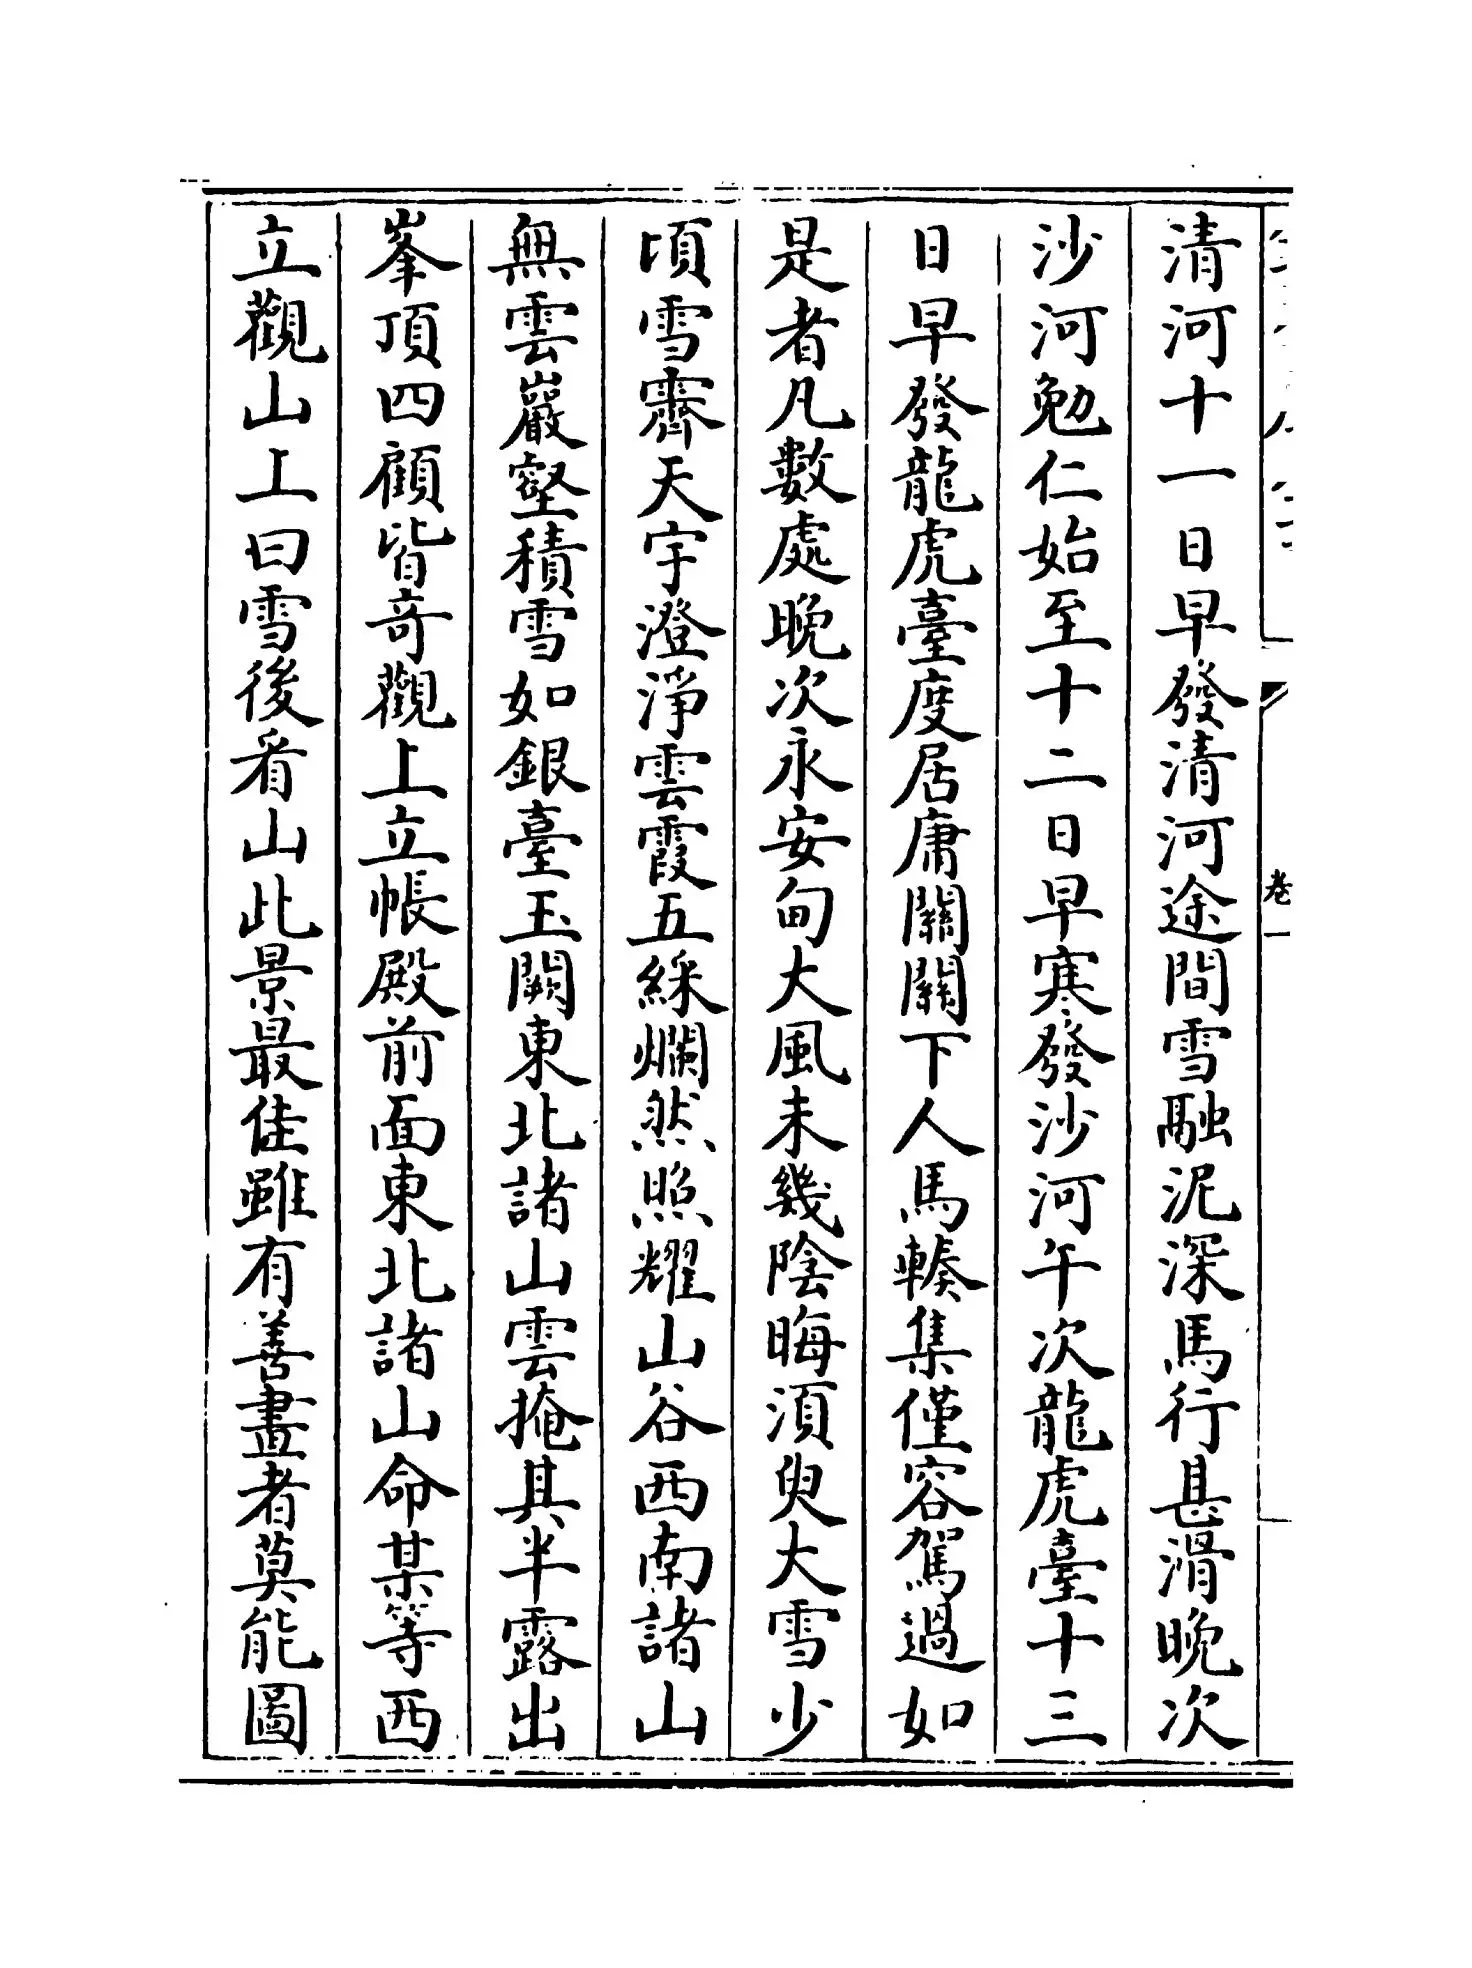 卷一
清河十一日早發清河途間雪融泥深馬行甚滑晚次
沙河勉仁始至十二日早寒發沙河午次龍虎臺十三
日早發龍虎臺度居庸關關下人馬輳集僅容駕過如
是者凡數處晚次永安甸大風未幾陰晦須臾大雪少
頃雪霽天宇澄淨雲霞五綵爛然照耀山谷西南諸山
無雲巖壑積雪如銀臺玉闕東北諸山雲掩其半露出
峯頂四顧皆奇觀上立帳殿前面東北諸山命某等西
立觀山上曰雪後看山此景最佳雖有善畫者莫能圖